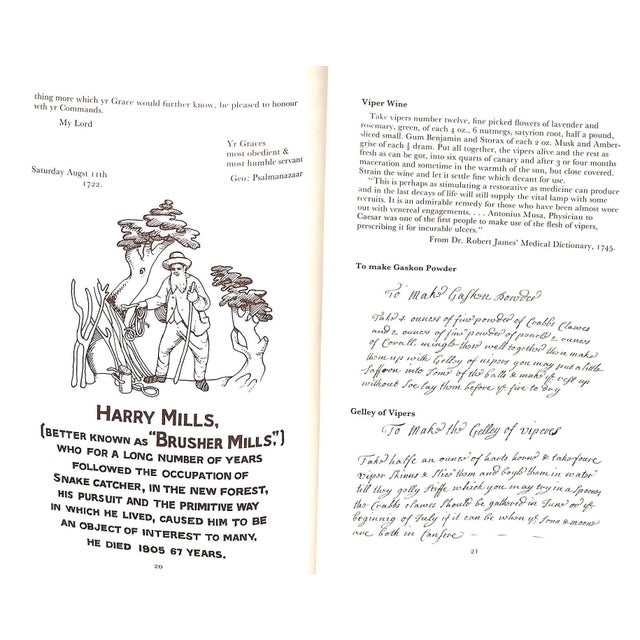 thing more which yr Grace would further know, be pleased to honour
wth yr Commands.
My Lord
Yr Graces
most obedient &
most humble servant
Saturday Augst 11th
1722.
Geo: Psalmanazaar
HARRY MILLS,
(BETTER KNOWN AS "BRUSHER MILLS",)
WHO FOR A LONG NUMBER OF YEARS
FOLLOWED THE OCCUPATION OF
SNAKE CATCHER, IN THE NEW FOREST,
HIS PURSUIT AND THE PRIMITIVE WAY
IN WHICH HE LIVED, CAUSED HIM TO BE
AN OBJECT OF INTEREST TO MANY.
HE DIED 1905 67 YEARS.
20
Viper Wine
Take vipers number twelve, fine picked flowers of lavender and
rosemary, green, of each 4 oz., 6 nutmegs, satyrion root, half a pound,
sliced small. Gum Benjamin and Storax of each 2 oz. Musk and Amber-
grise of each ½ dram. Put all together, the vipers alive and the rest as
fresh as can be got, into six quarts of canary and after 3 or four months
maceration and sometime in the warmth of the sun, but close covered.
Strain the wine and let it settle fine which decant for use.
"This is perhaps as stimulating a restorative as medicine can produce
and in the last decays of life will still supply the vital lamp with some
recruits. It is an admirable remedy for those who have been almost worn
out with venereal engagements. . . . Antonius Musa, Physician to
Caesar was one of the first people to make use of the flesh of vipers,
prescribing it for incurable ulcers."
From Dr. Robert James' Medical Dictionary, 1745.
To make Gaskon Powder
To Make Gaskon Powder
Take 4 ounces of fine powder of Crabbs Clawes
and 2 ounces of fine powder of pearle 2 ounces
of Corall, mingle these well together then make
them up with Gelley of vipers you may put a little
Saffron into some of the balls & make ye rest up
without Soe lay them before ye fire to dry
Gelley of Vipers
To Make the Gelley of vipers
Take halfe an ounce of harts horne & take foure
viper Skinns & Slice them and boyle them in water
till they gelly Stiffe which you may try in a Spoone,
the Crabbs clawes Should be gathered in June or ye
beginnig of July if it can be when ye Sonn & moone
are both in
21